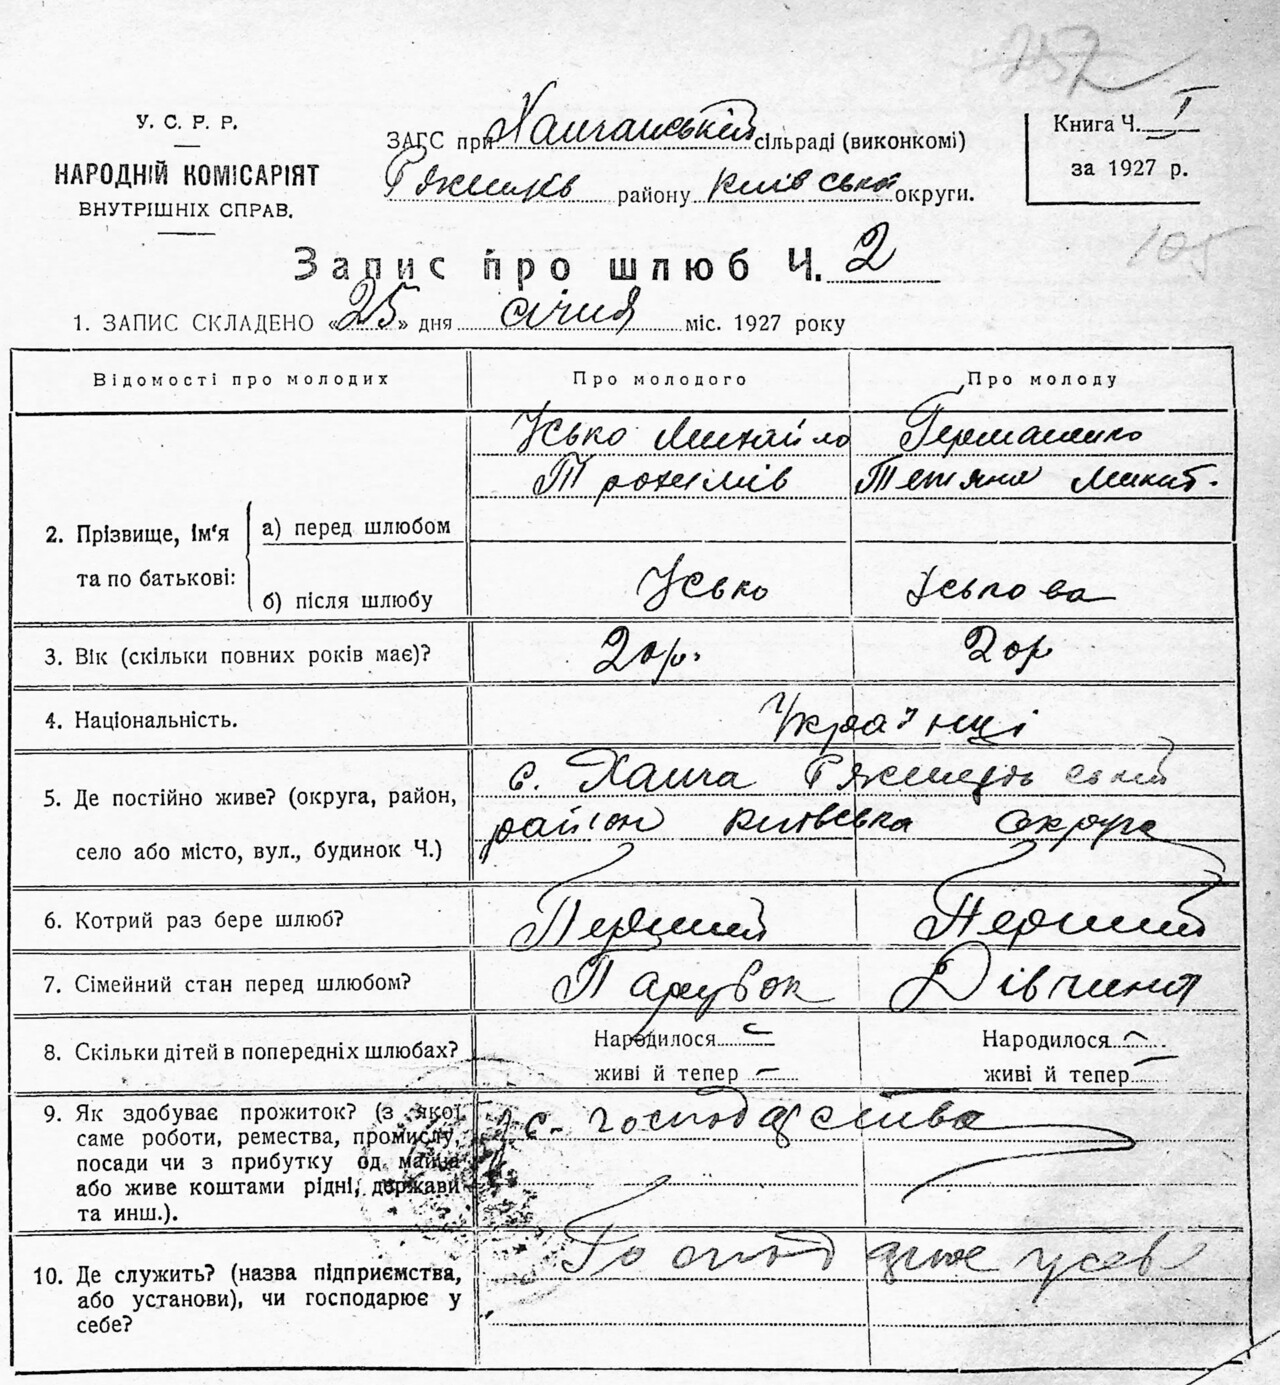 257
У. С. Р. Р.
НАРОДНІЙ КОМІСАРІЯТ
ВНУТРІШНІХ СПРАВ.
ЗАГС при Ханчанській сільраді (виконкомі)
району Київської округи.
Книга Ч. I
за 1927 р.
105
Запис про шлюб Ч. 2
1. ЗАПИС СКЛАДЕНО «25» дня січня міс. 1927 року
Відомості про молодих
Про молодого
Про молоду
2. Прізвище, ім'я
та по батькові:
а) перед шлюбом
б) після шлюбу
Усько Михайло
Трохимів
Усько
Германенко
Тетяна Микит.
Уськова
3. Вік (скільки повних років має)?
20р.
20р
4. Національність.
Українці
5. Де постійно живе? (округа, район,
село або місто, вул., будинок Ч.)
с. Ханча
район Київська округа
6. Котрий раз бере шлюб?
Перший
Перший
7. Сімейний стан перед шлюбом?
Парубок
Дівчина
8. Скільки дітей в попередніх шлюбах?
Народилося –
живі й тепер –
Народилося –
живі й тепер –
9. Як здобуває прожиток? (з якої
саме роботи, ремества, промислу,
посади чи з прибутку од майна
або живе коштами рідні, держави
та инш.).
с. господарства
10. Де служить? (назва підприємства,
або установи), чи господарює у
себе?
Господарює у себе